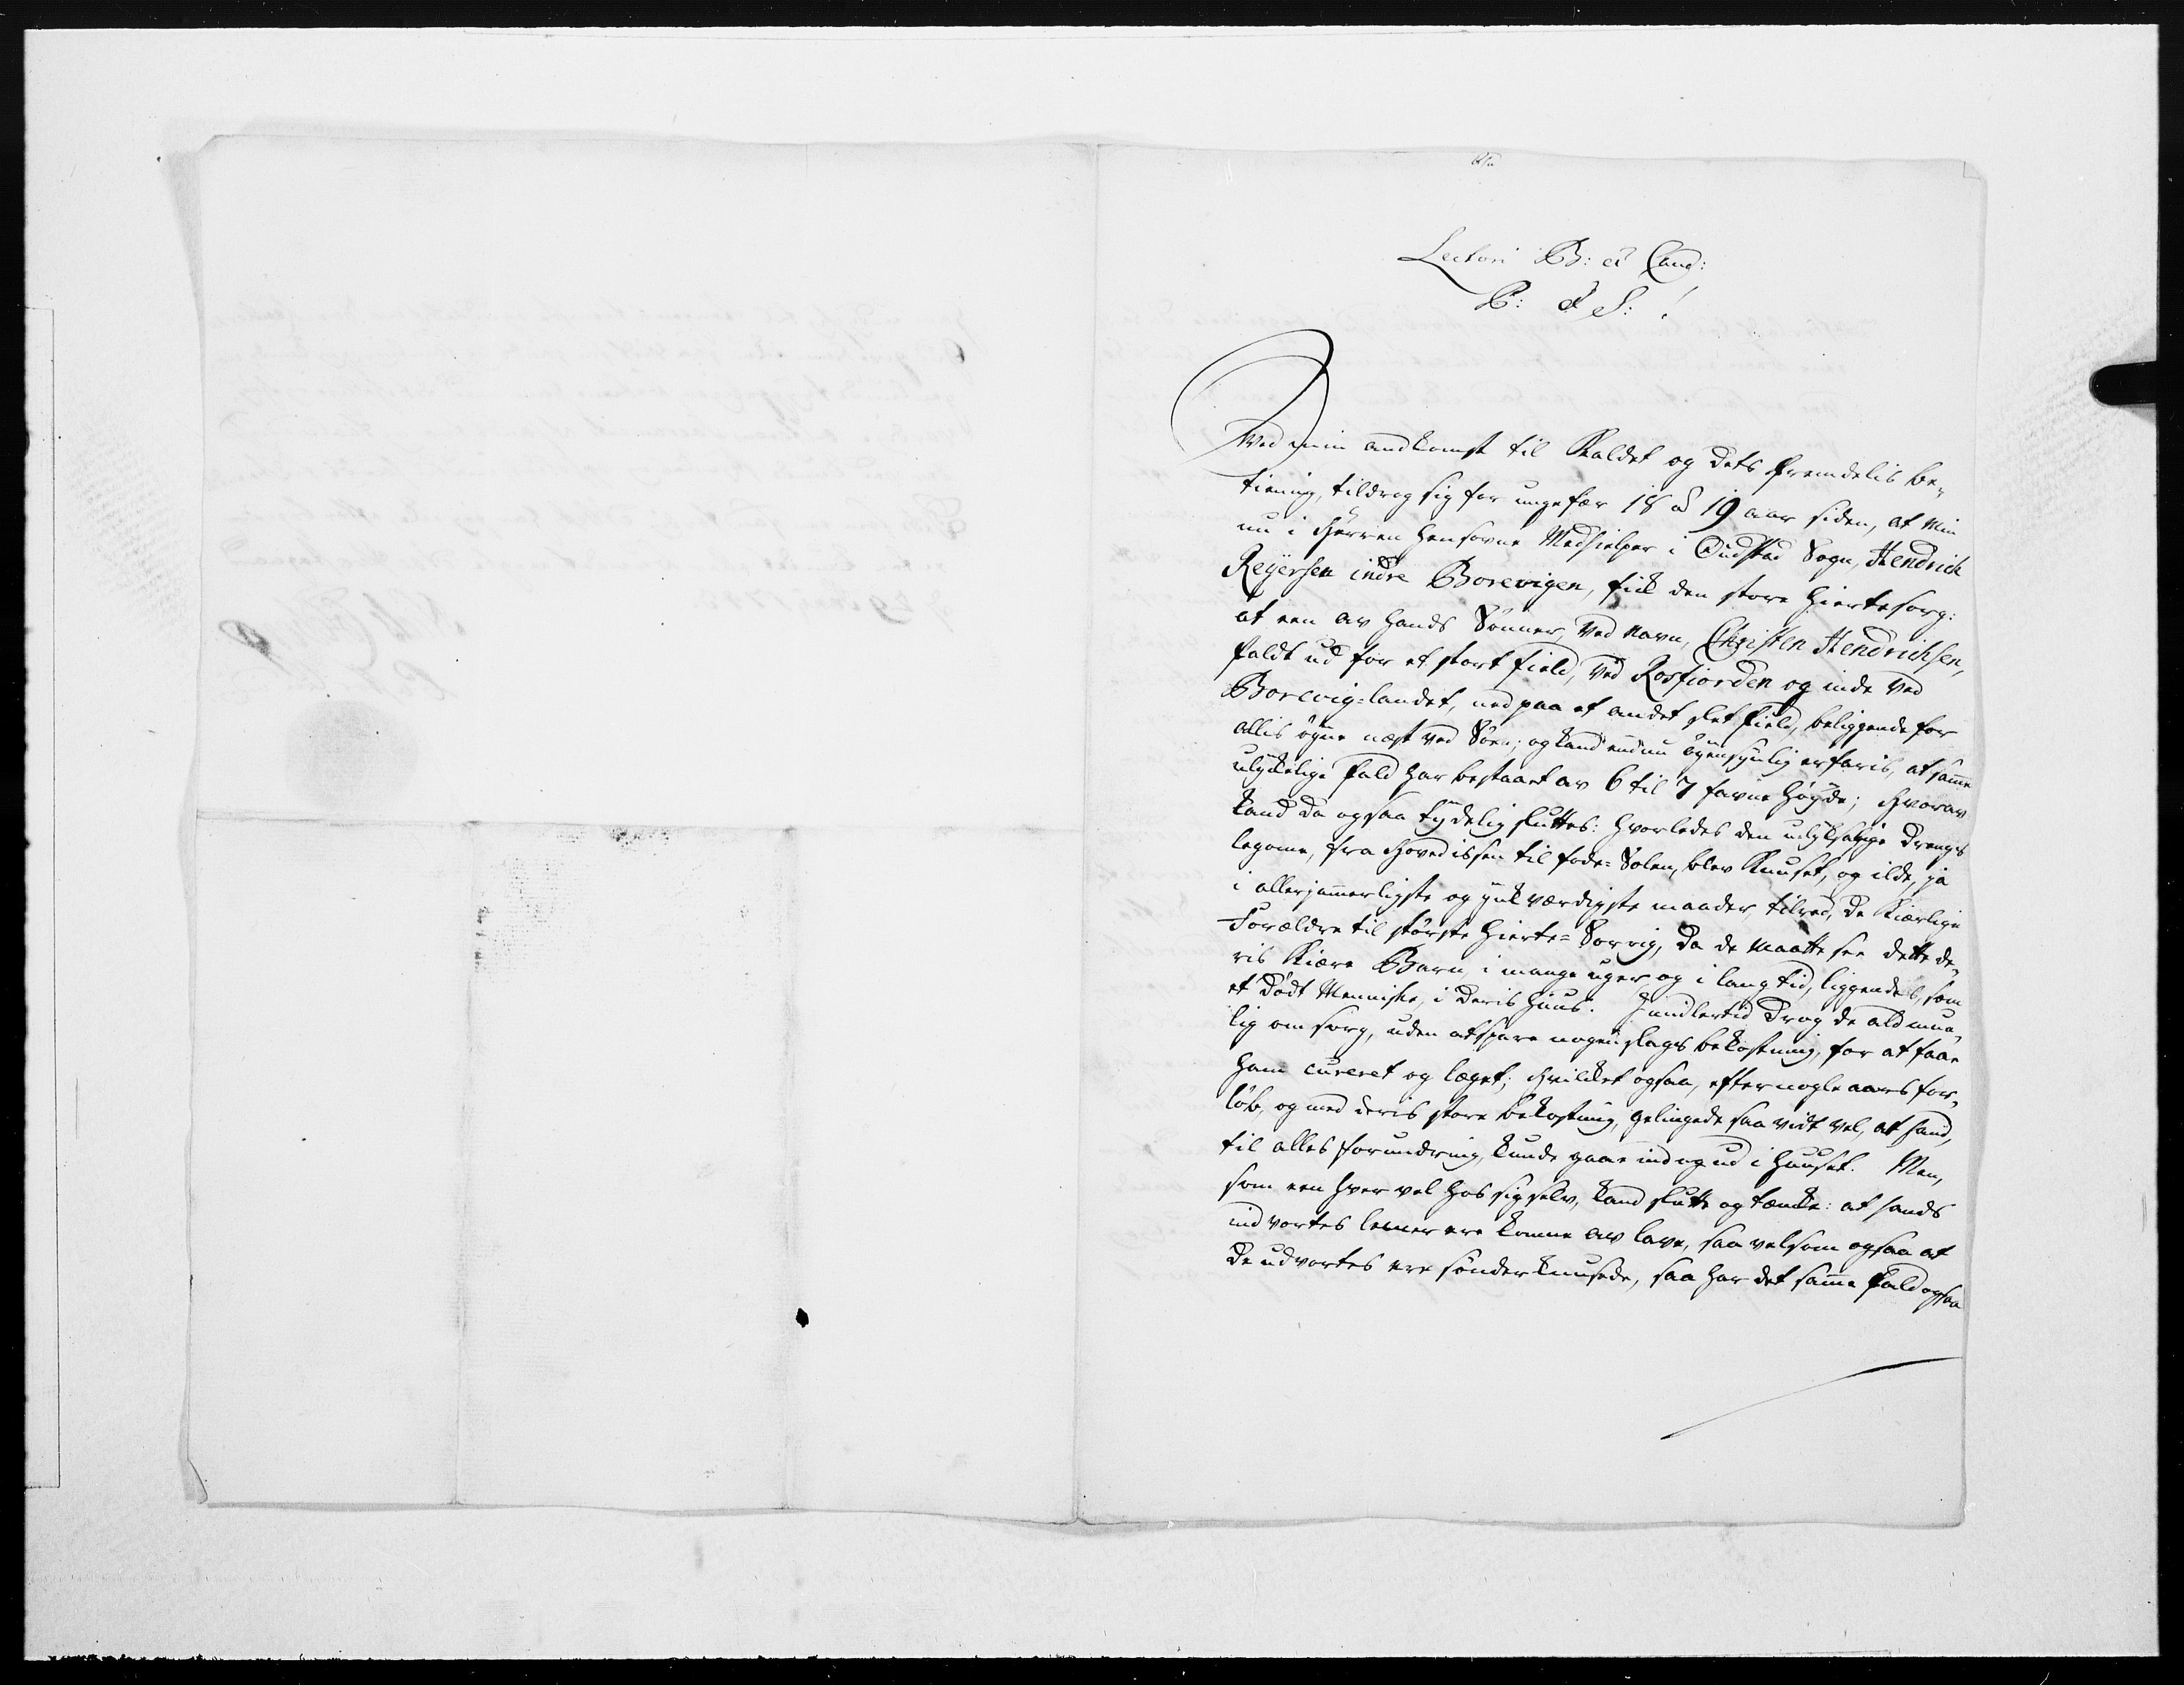 Lectori B: et Cand:
P: et S: !
Ved min andkomst til Kaldet og dets fremdelis be-
tiening, tildrog sig for ungefær 18 à 19 aar siden, at min
nu i Herren hensovne Medhielper i Oudstad Sogn, Hendrich
Reÿersen indre Borevigen, fick den store Hiertesorg:
at een av hands Sønner, ved navn, Christen Hendrichsen,
faldt ud for et stort field, ved Rosfiorden og inde ved
Borevig-landet, ned paa et andet slet field, beliggende for
allis øÿne næst ved Søen; og kand endnu øÿensÿnlig erfaris, at samme
ulÿckelige fald har bestaaet av 6 til 7 favne høÿde; hvorav
kand da ogsaa tÿdelig sluttes: hvorledes den ulÿksalige Drengs
legome, fra Hovedissen til fode-Solen, blev knuset, og ilde, ja
i allerjammerligste og ÿnkværdigste maader, tilred, de Kiærlige
Forældre til største Hierte-Sorrig, da de maatte see dette de-
ris Kiære Barn, i mange uger og i lang tid, liggendes, som
et dødt Menniske, i deris Huus. Jmidlertid drog de ald mue-
lig omsorg, uden at spare nogen slags bekostning, for at faae
ham cureret og læget; hvilcket ogsaa, efter nogle aars for-
løb, og med deris store bekostning, gelingede saa vidt vel, at hand,
til alles forundring, kunde gaae ind og ud i Huuset. Men,
som een hver vel hos sig selv, kand slutte og tæncke: at hands
indvortes lemer ere komne av lave, saa vel som ogsaa at
de udvortes ere sønderknusede, saa har det samme fald ogsaa